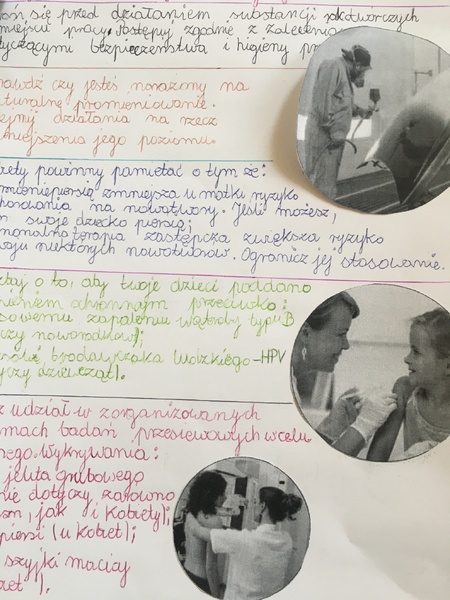 oń się przed działaniem substancji rakotwórczych
miejscu pracy. Postępuj zgodnie z zalecenia
yczącymi bezpieczeństwa i higieny pr
rawdź czy jesteś narażony na
aturalne promieniowanie.
ejmij działania na rzecz
niejszenia jego poziomu.
biety powinny pamiętać o tym że:
rmienie piersią zmniejsza u matki ryzyko
horowania na nowotwory. Jeśli możesz,
m swoje dziecko piersią;
monalna terapia zastępcza zwiększa ryzyko
woju niektórych nowotworów. Ogranicz jej stosowanie.
taj o to, aby twoje dzieci poddano
pieniem ochronnym przeciwko:
sowemu zapaleniu wątroby typu B
czy noworodków);
usowi brodawczaka ludzkiego-HPV
yczy dziewcząt).
z udział w zorganizowanych
mach badań przesiewowych w celu
nego wykrywania:
jelita grubego
nie dotyczy zarówno
zn, jak i kobiety);
piersi (u kobiet);
szyjki macicy
iet ).